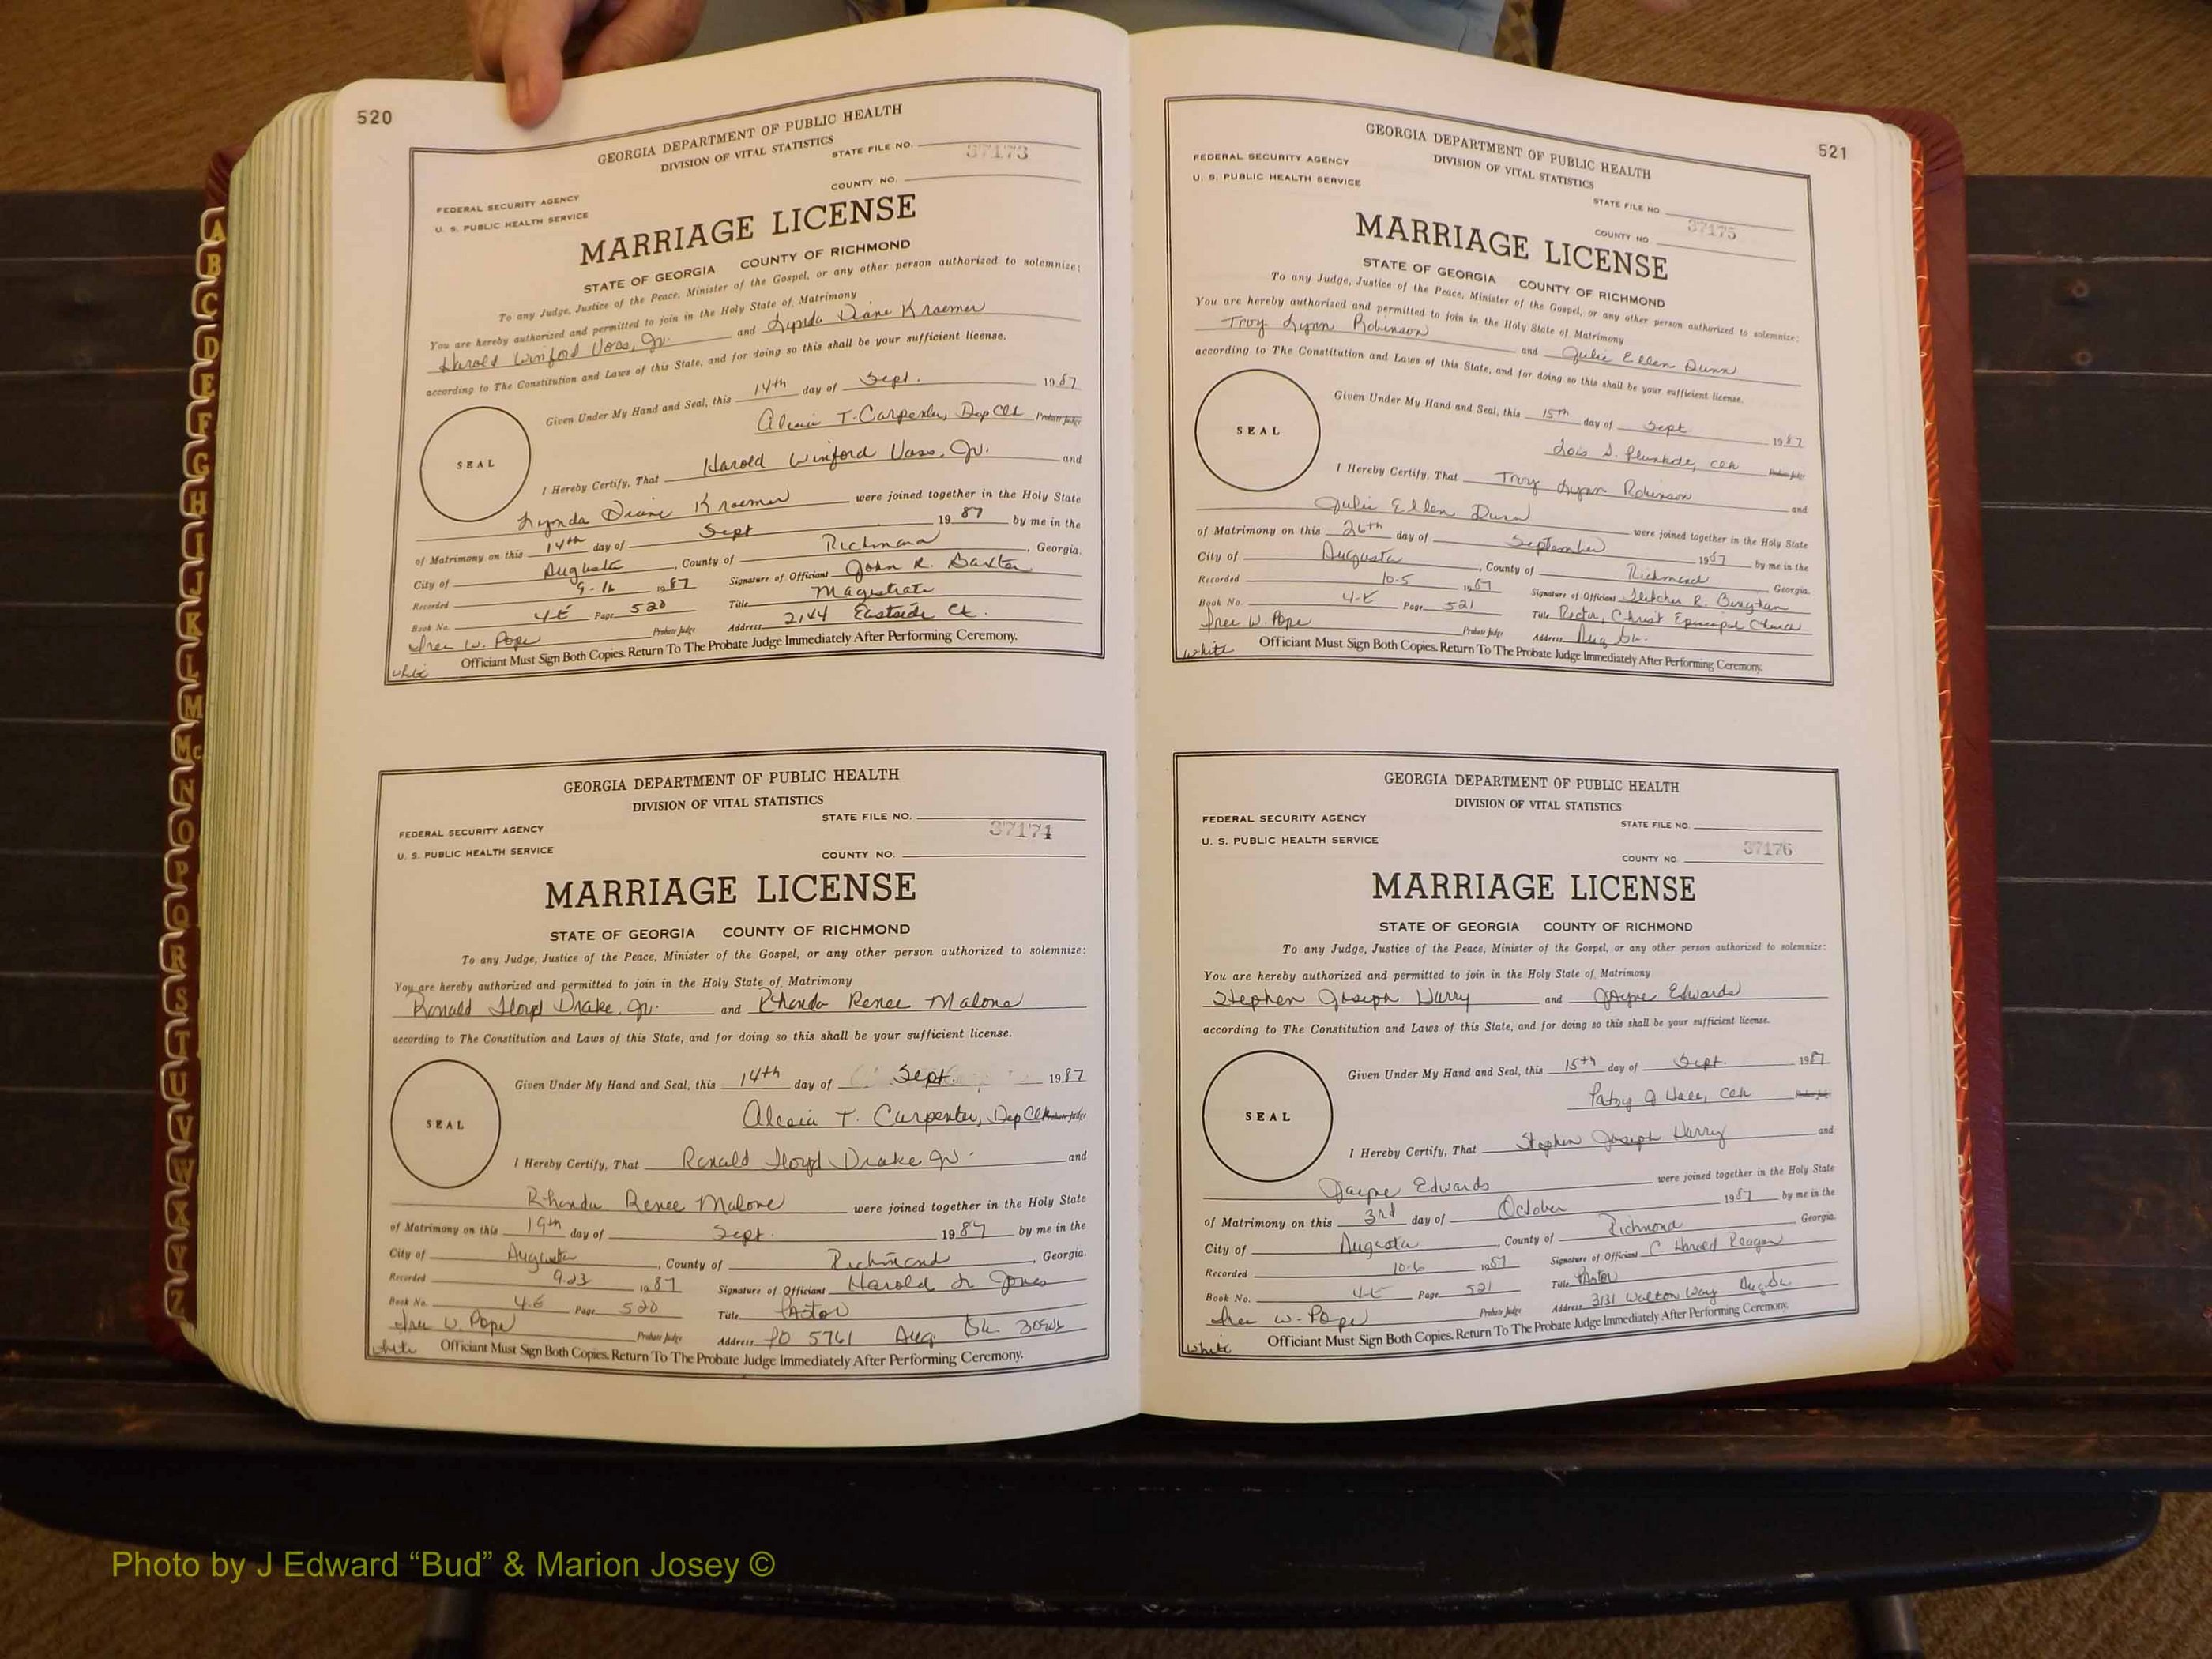 520
GEORGIA DEPARTMENT OF PUBLIC HEALTH
DIVISION OF VITAL STATISTICS
STATE FILE NO. 37173
COUNTY NO.
FEDERAL SECURITY AGENCY
U. S. PUBLIC HEALTH SERVICE
MARRIAGE LICENSE
STATE OF GEORGIA COUNTY OF RICHMOND
To any Judge, Justice of the Peace, Minister of the Gospel, or any other person authorized to solemnize:
You are hereby authorized and permitted to join in the Holy State of Matrimony
Harold Winford Voss, Jr. and Lynda Diane Kraemer
according to The Constitution and Laws of this State, and for doing so this shall be your sufficient license.
Given Under My Hand and Seal, this 14th day of Sept. 1987
Alesia T. Carpenter, Dep Clk Probate Judge
SEAL
I Hereby Certify, That Harold Winford Voss, Jr. and
Lynda Diane Kraemer were joined together in the Holy State
of Matrimony on this 14th day of Sept 1987 by me in the
City of Augusta, County of Richmond, Georgia.
Recorded 9-16 1987 Signature of Officiant John R. Baxter
Book No. 4-E Page 520 Title Magistrate
W. Pope Probate Judge Address 2144 Eastside Ct.
white Officiant Must Sign Both Copies. Return To The Probate Judge Immediately After Performing Ceremony.
GEORGIA DEPARTMENT OF PUBLIC HEALTH
DIVISION OF VITAL STATISTICS
STATE FILE NO. 37174
FEDERAL SECURITY AGENCY
U. S. PUBLIC HEALTH SERVICE
COUNTY NO.
MARRIAGE LICENSE
STATE OF GEORGIA COUNTY OF RICHMOND
To any Judge, Justice of the Peace, Minister of the Gospel, or any other person authorized to solemnize:
You are hereby authorized and permitted to join in the Holy State of Matrimony
Ronald Floyd Drake, Jr. and Rhonda Renee Malone
according to The Constitution and Laws of this State, and for doing so this shall be your sufficient license.
Given Under My Hand and Seal, this 14th day of Sept. 1987
Alesia T. Carpenter, Dep Clk Probate Judge
SEAL
I Hereby Certify, That Ronald Floyd Drake Jr. and
Rhonda Renee Malone were joined together in the Holy State
of Matrimony on this 19th day of Sept. 1987 by me in the
City of Augusta, County of Richmond, Georgia.
Recorded 9-23 1987 Signature of Officiant Harold Jones
Book No. 4-E Page 520 Title Pastor
W. Pope Probate Judge Address PO 5761 Aug Ga.
white Officiant Must Sign Both Copies. Return To The Probate Judge Immediately After Performing Ceremony.
521
GEORGIA DEPARTMENT OF PUBLIC HEALTH
DIVISION OF VITAL STATISTICS
FEDERAL SECURITY AGENCY
U. S. PUBLIC HEALTH SERVICE
STATE FILE NO. 37175
COUNTY NO.
MARRIAGE LICENSE
STATE OF GEORGIA COUNTY OF RICHMOND
To any Judge, Justice of the Peace, Minister of the Gospel, or any other person authorized to solemnize:
You are hereby authorized and permitted to join in the Holy State of Matrimony
Troy Lynn Robinson and Julie Ellen Dunn
according to The Constitution and Laws of this State, and for doing so this shall be your sufficient license.
Given Under My Hand and Seal, this 15th day of Sept 1987
Lois S. Clk Probate Judge
SEAL
I Hereby Certify, That Troy Lynn Robinson and
Julie Ellen Dunn were joined together in the Holy State
of Matrimony on this 26th day of September 1987 by me in the
City of Augusta, County of Richmond Georgia.
Recorded 10-5 1987 Signature of Officiant R.
Book No. 4-E Page 521 Title Rector, Christ Episcopal Church
W. Pope Probate Judge Address Aug Ga.
white Officiant Must Sign Both Copies. Return To The Probate Judge Immediately After Performing Ceremony.
GEORGIA DEPARTMENT OF PUBLIC HEALTH
DIVISION OF VITAL STATISTICS
FEDERAL SECURITY AGENCY
STATE FILE NO.
U. S. PUBLIC HEALTH SERVICE
COUNTY NO. 37176
MARRIAGE LICENSE
STATE OF GEORGIA COUNTY OF RICHMOND
To any Judge, Justice of the Peace, Minister of the Gospel, or any other person authorized to solemnize:
You are hereby authorized and permitted to join in the Holy State of Matrimony
Stephen Joseph Harry and Jayne Edwards
according to The Constitution and Laws of this State, and for doing so this shall be your sufficient license.
Given Under My Hand and Seal, this 15th day of Sept. 1987
Patsy J Hall, Clk Probate Judge
SEAL
I Hereby Certify, That Stephen Joseph Harry and
Jayne Edwards were joined together in the Holy State
of Matrimony on this 3rd day of October 1987 by me in the
City of Augusta, County of Richmond Georgia.
Recorded 10-6 1987 Signature of Officiant C. Harold Reagan
Book No. 4-E Page 521 Title Pastor
W. Pope Probate Judge Address 3131 Walton Way Aug, Ga
white Officiant Must Sign Both Copies. Return To The Probate Judge Immediately After Performing Ceremony.
A
B
C
D
E
F
G
H
I
J
K
L
M
Mc
N
O
P
Q
R
S
T
U
V
W
X
Y
Z
Photo by J Edward “Bud” & Marion Josey ©